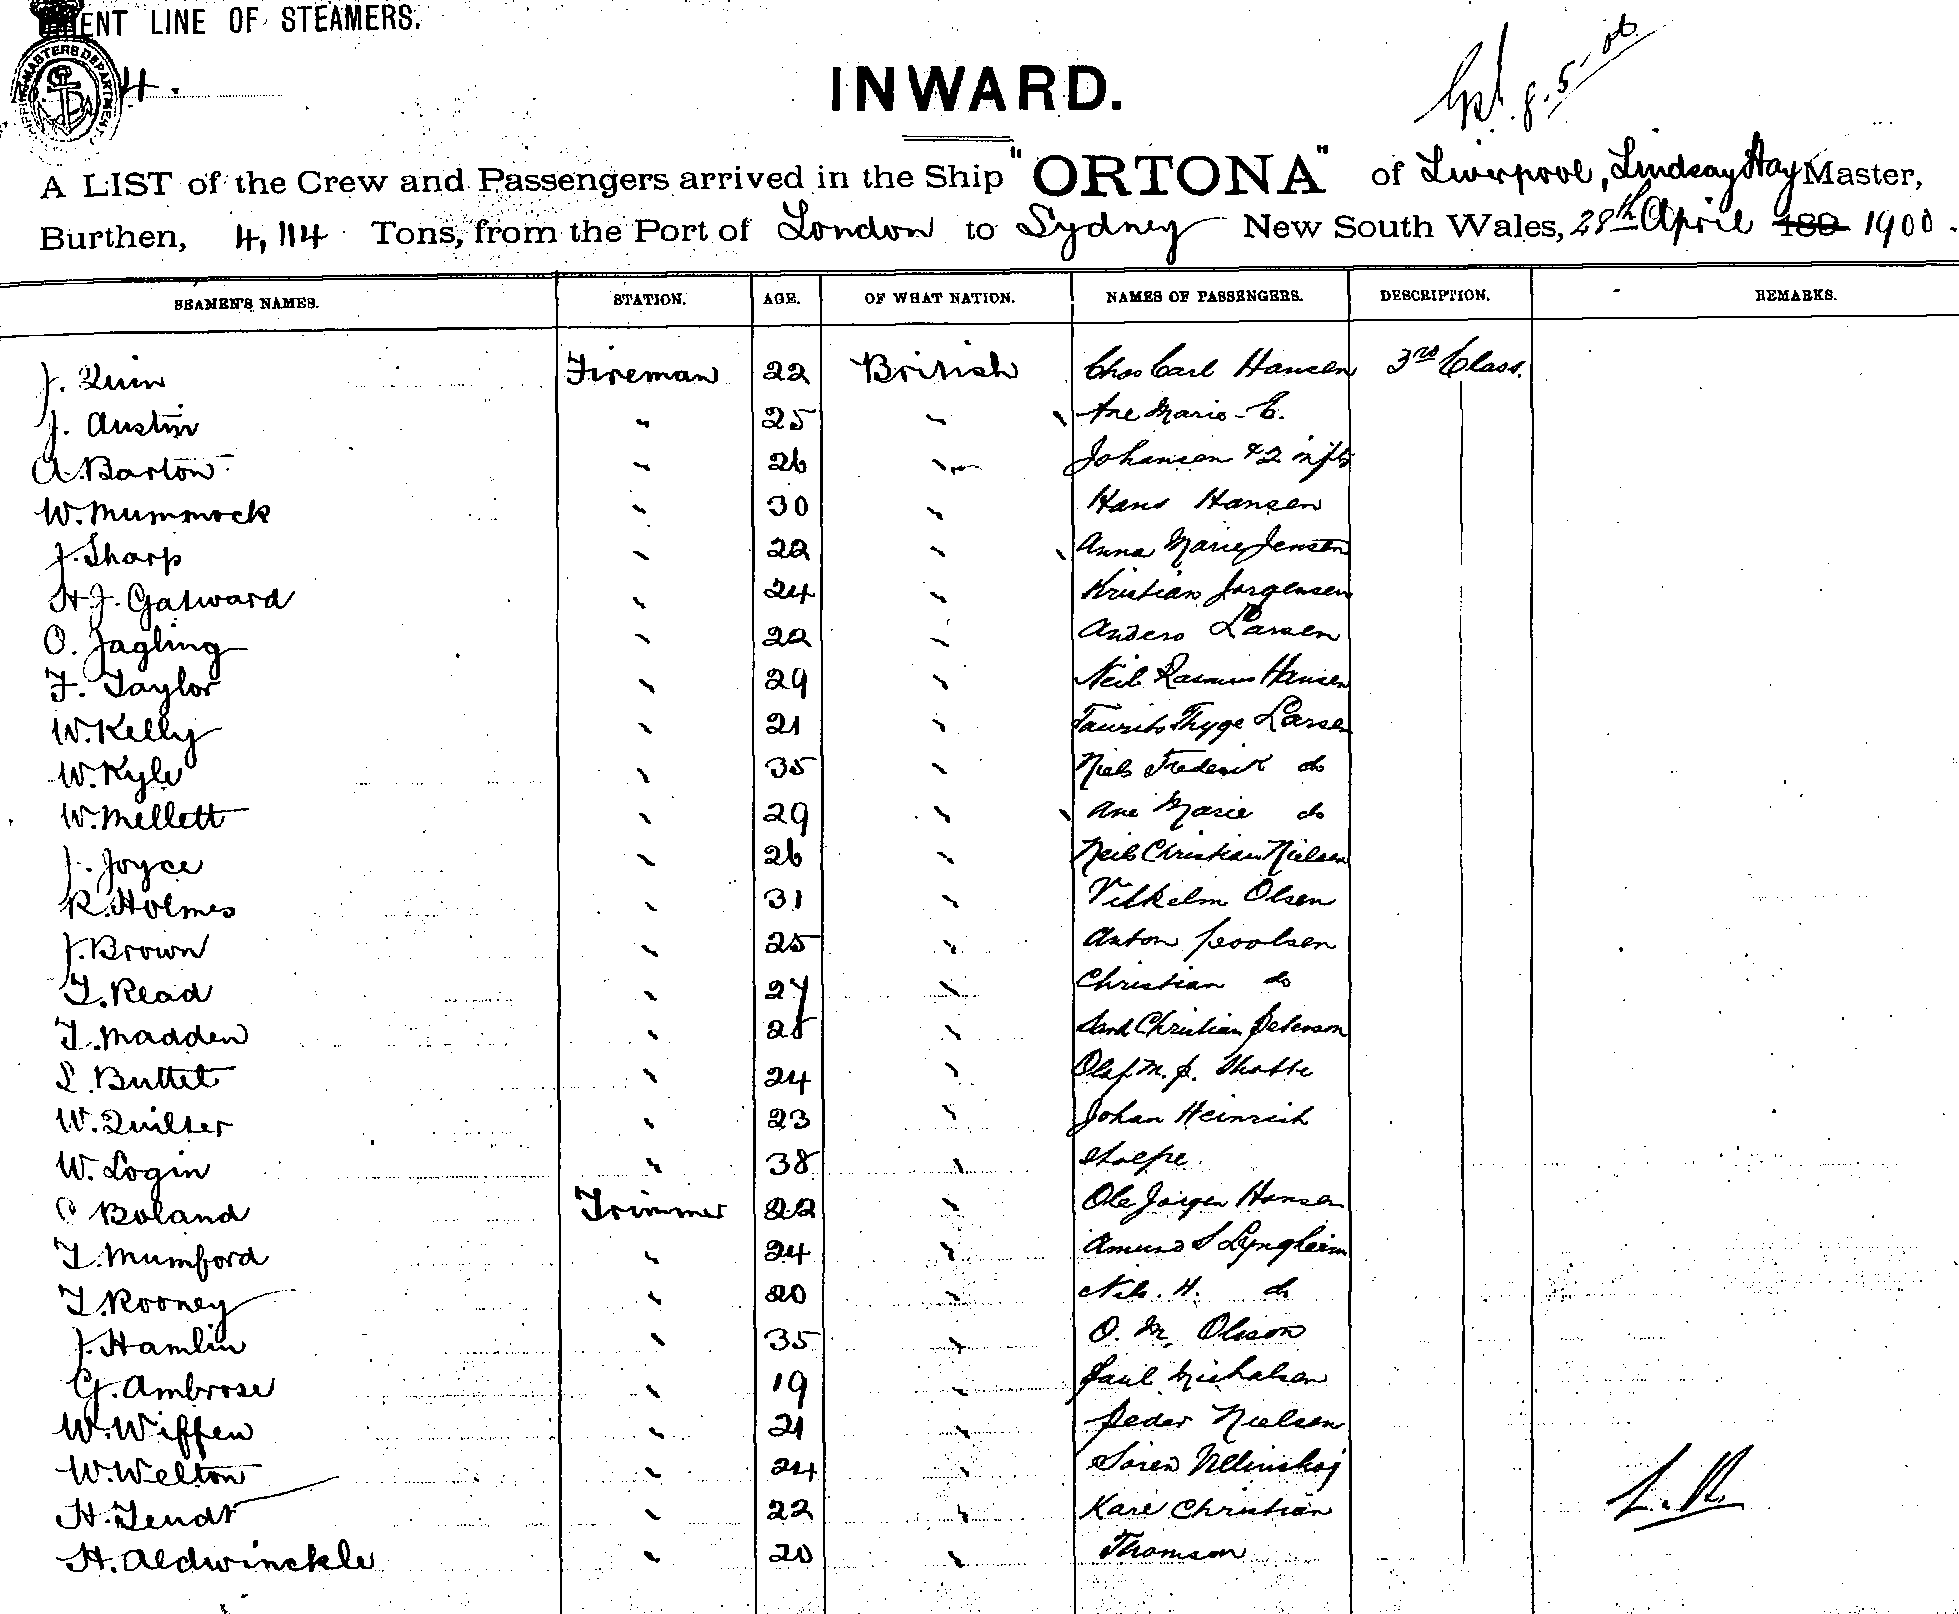 ENT LINE OF STEAMERS.
4.
INWARD.
A LIST of the Crew and Passengers arrived in the Ship "ORTONA" of Liverpool, Lindsay Hay Master,
Burthen, 4,114 Tons, from the Port of London to Sydney New South Wales, 28th April 189 1900.
SEAMEN'S NAMES. STATION. AGE. OF WHAT NATION. NAMES OF PASSENGERS. DESCRIPTION. REMARKS.
J. Quin Fireman 22 British Chas Carl Hansen 3rd Class.
J. Austin " 25 " Ane Marie E.
A. Barton " 26 " Johansen & 2 infts
W. Mummock " 30 " Hans Hansen
J. Sharp " 22 " Anna Marie Jensen
H. J. Gatward " 24 " Kristian Jorgensen
O. Jagling " 22 " Anders Larsen
F. Taylor " 29 " Neil Rasmus Hansen
W. Kelly " 21 " Thyge Larsen
W. Kyle " 35 " Niels Frederik do
W. Mellett " 29 " Ane Marie do
J. Joyce " 26 " Neils Christian Nielsen
R. Holmes " 31 " Vilhelm Olsen
J. Brown " 25 " Anton Poolsen
T. Read " 27 " Christian do
T. Madden " 28 " Christian Peterson
S. Buttet " 24 " Olaf M. P.
W. Quilter " 23 " Johan Heinrich
W. Login " 38 "
C Boland Trimmer 22 " Ole Jorgen Hansen
T. Mumford " 24 " Amund S Lyngheim
T. Rooney " 20 " H. do
J. Hamlin " 35 " O. M. Olsson
G. Ambrose " 19 " Paul Michalsen
W. Wiffen " 21 " Peder Nielsen
W. Welton " 24 " Soren
H. Tendt " 22 " Kare Christian
H. Aldwinckle " 20 " Thomson